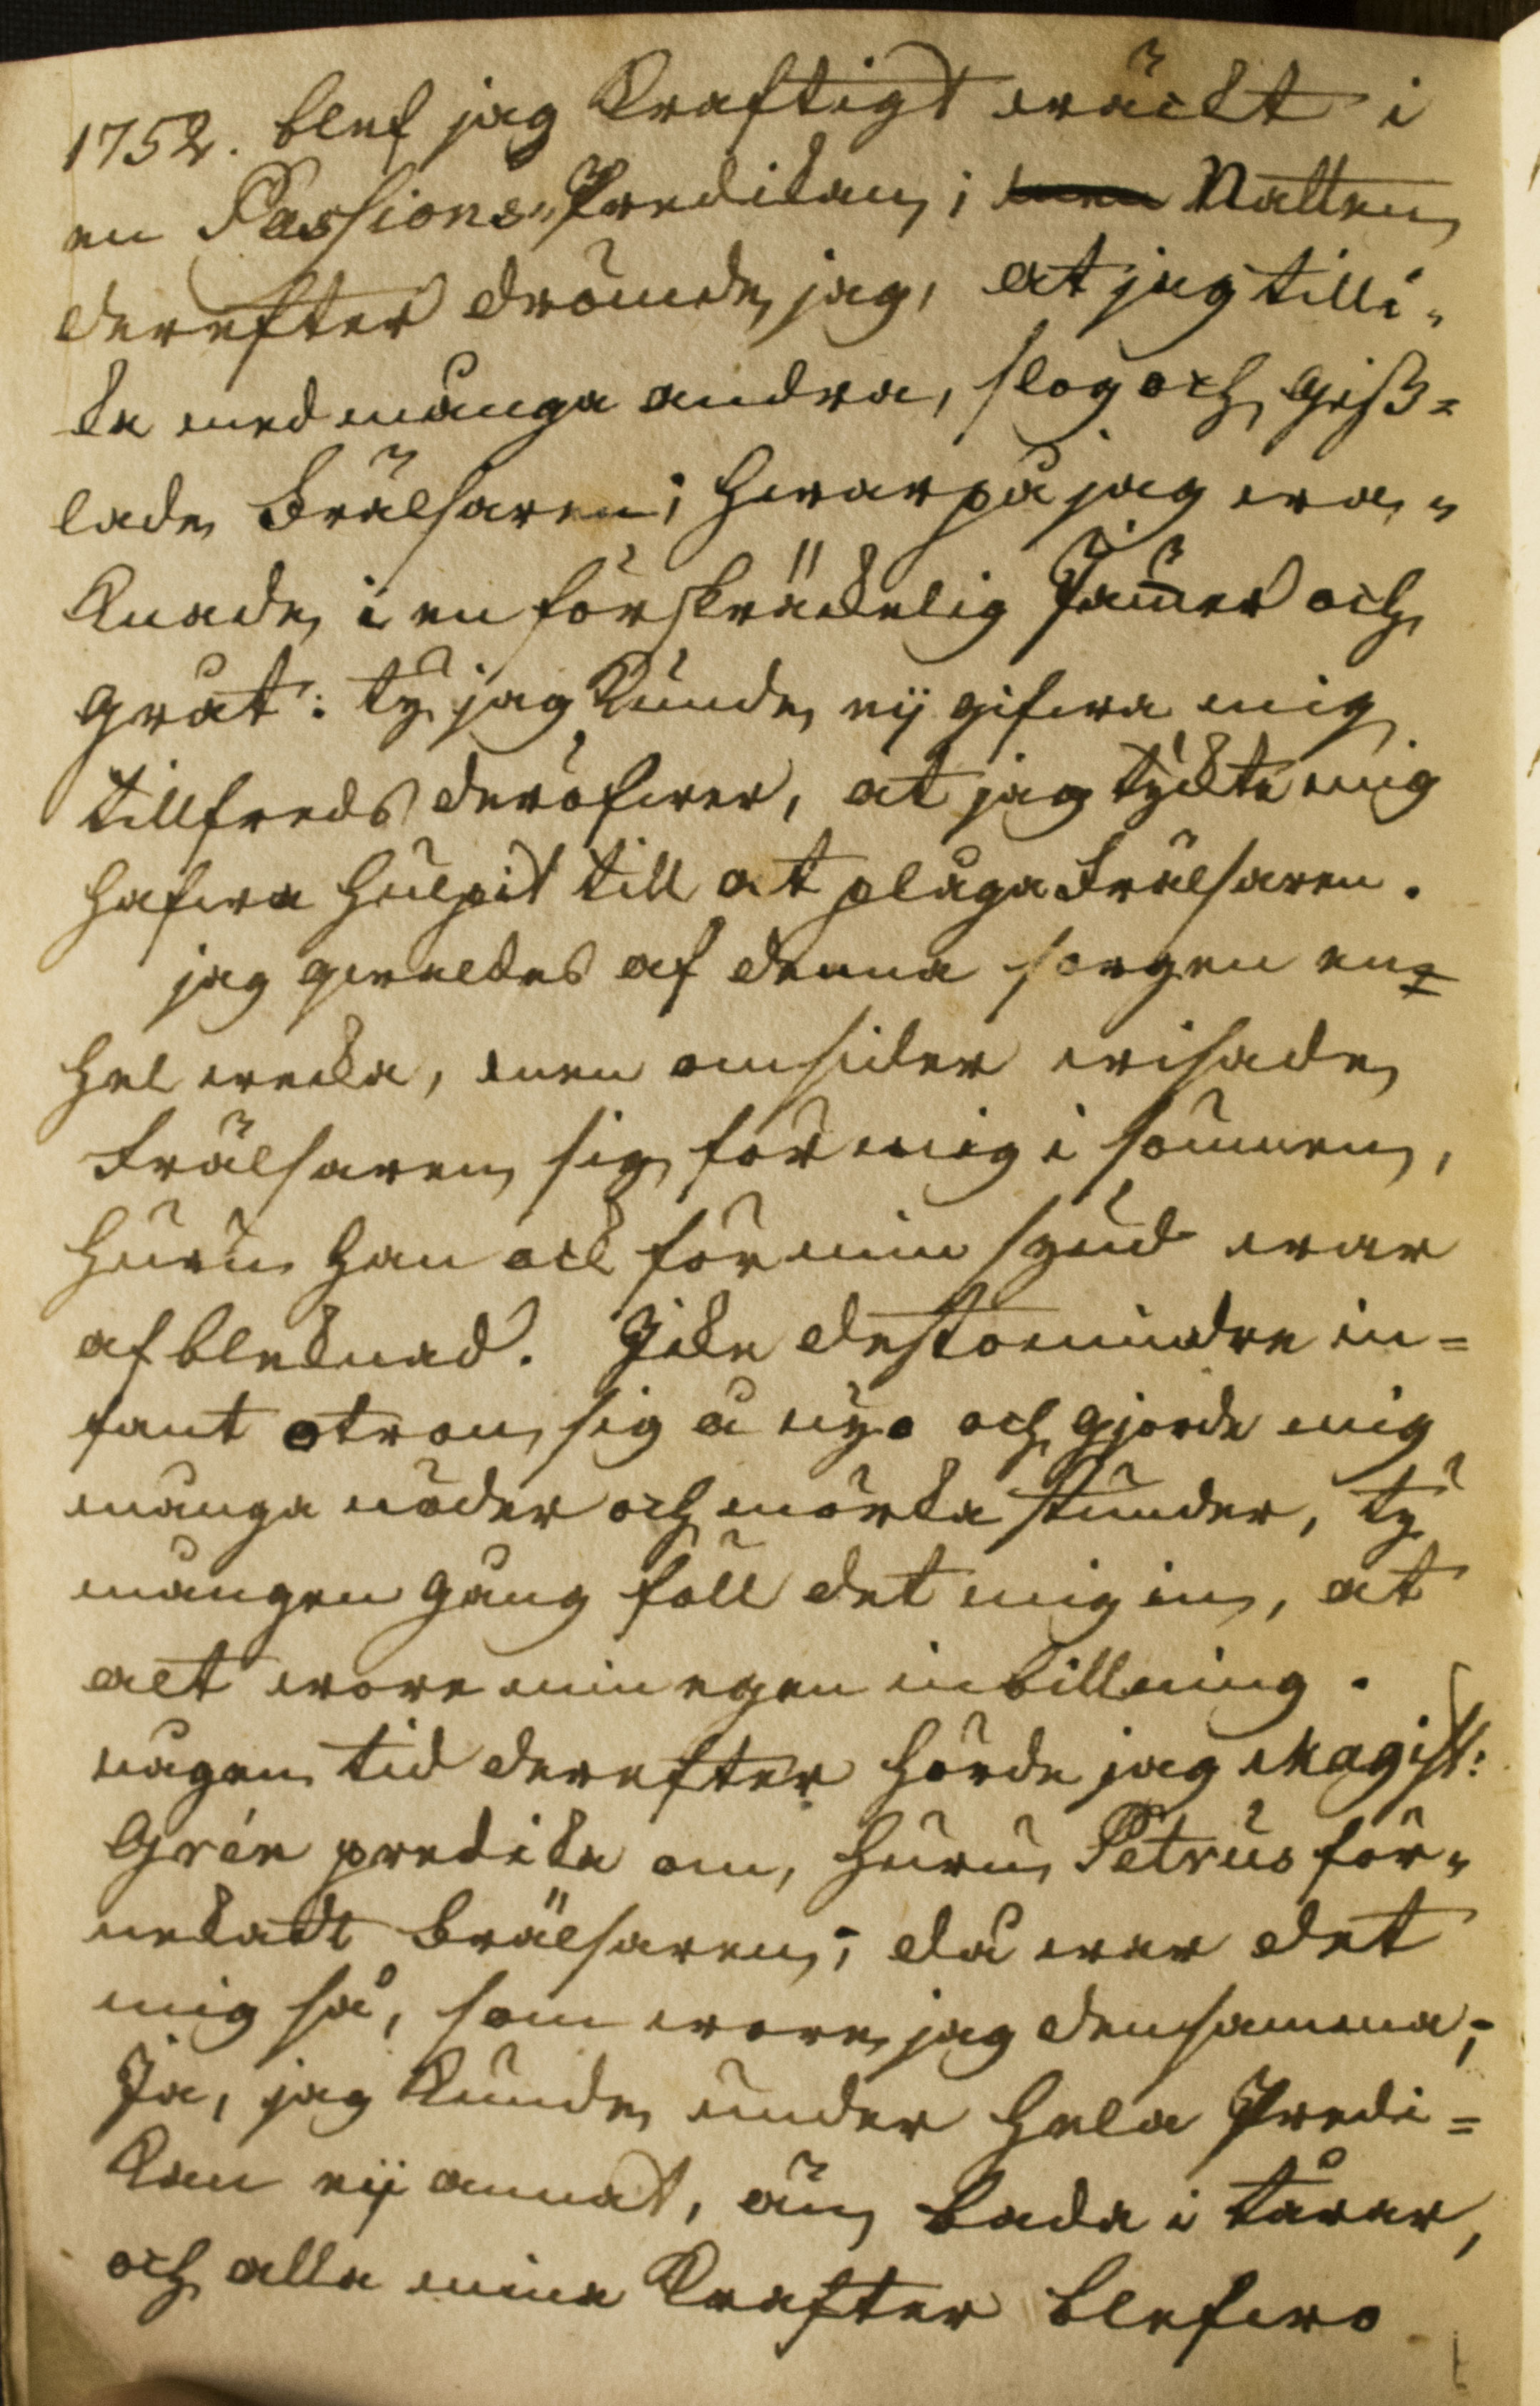 1752. blef jag kraftigt wäckt i
en Passions-Predikan; men Natten
derefter drömde jag, at jag tilli-
ka med många andra, slog och giß=
lade Frälsaren; hwarpå jag wa-
knade i en förskräckelig Jam̄er och
gråt: ty jag kunde eij gifwa mig
tillfreds deröfwer, at jag tyckte mig
hafwa hulpit till at plåga Frälsaren.
jag qwaldes af denna sorgen en=
hel wecka, men omsider wisade
Frälsaren sig för mig i sömnen,
huru han ock för min synd war
afbleknad. Icke destomindre in=
fant otron sig å nyo och gjorde mig
många nöder och mörka stunder, ty
mången gång föll det mig in, at
alt wore min egen inbillning.
någon tid derefter hörde jag Magist:
Grén predika om, huru Petrus för-
nekadt Frälsaren; då war det
mig så, som wore jag densamma;
Ja, jag kunde under hela Predi=
kan eij annat, än bada i tårar,
och alla mina krafter blefwo